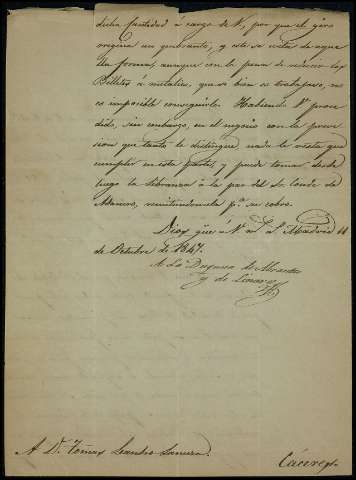 dicha Cantidad á cargo de V, por que el giro
origina un quebranto, y este se evita de aque
lla forma, aunque con la pena de reducir los
Billetes á metalico, que si bien es trabajoso, no
es imposible conseguirlo. Habiendo V. proce
dido, sin embargo, en el negocio con la preci
sion que tanto le distingue nada le resta que
cumplir en esta parte, y puede tomar desde
luego la libranza á la par del Sr. Conde de
Adanero, remitiendola pa. su cobro.
Dios gue á V. m. a. Madrid 11
de Octubre de 1847.
A La Duquesa de Abrantes
y de Linares
A Dn. Tomas Leandro
Cáceres.